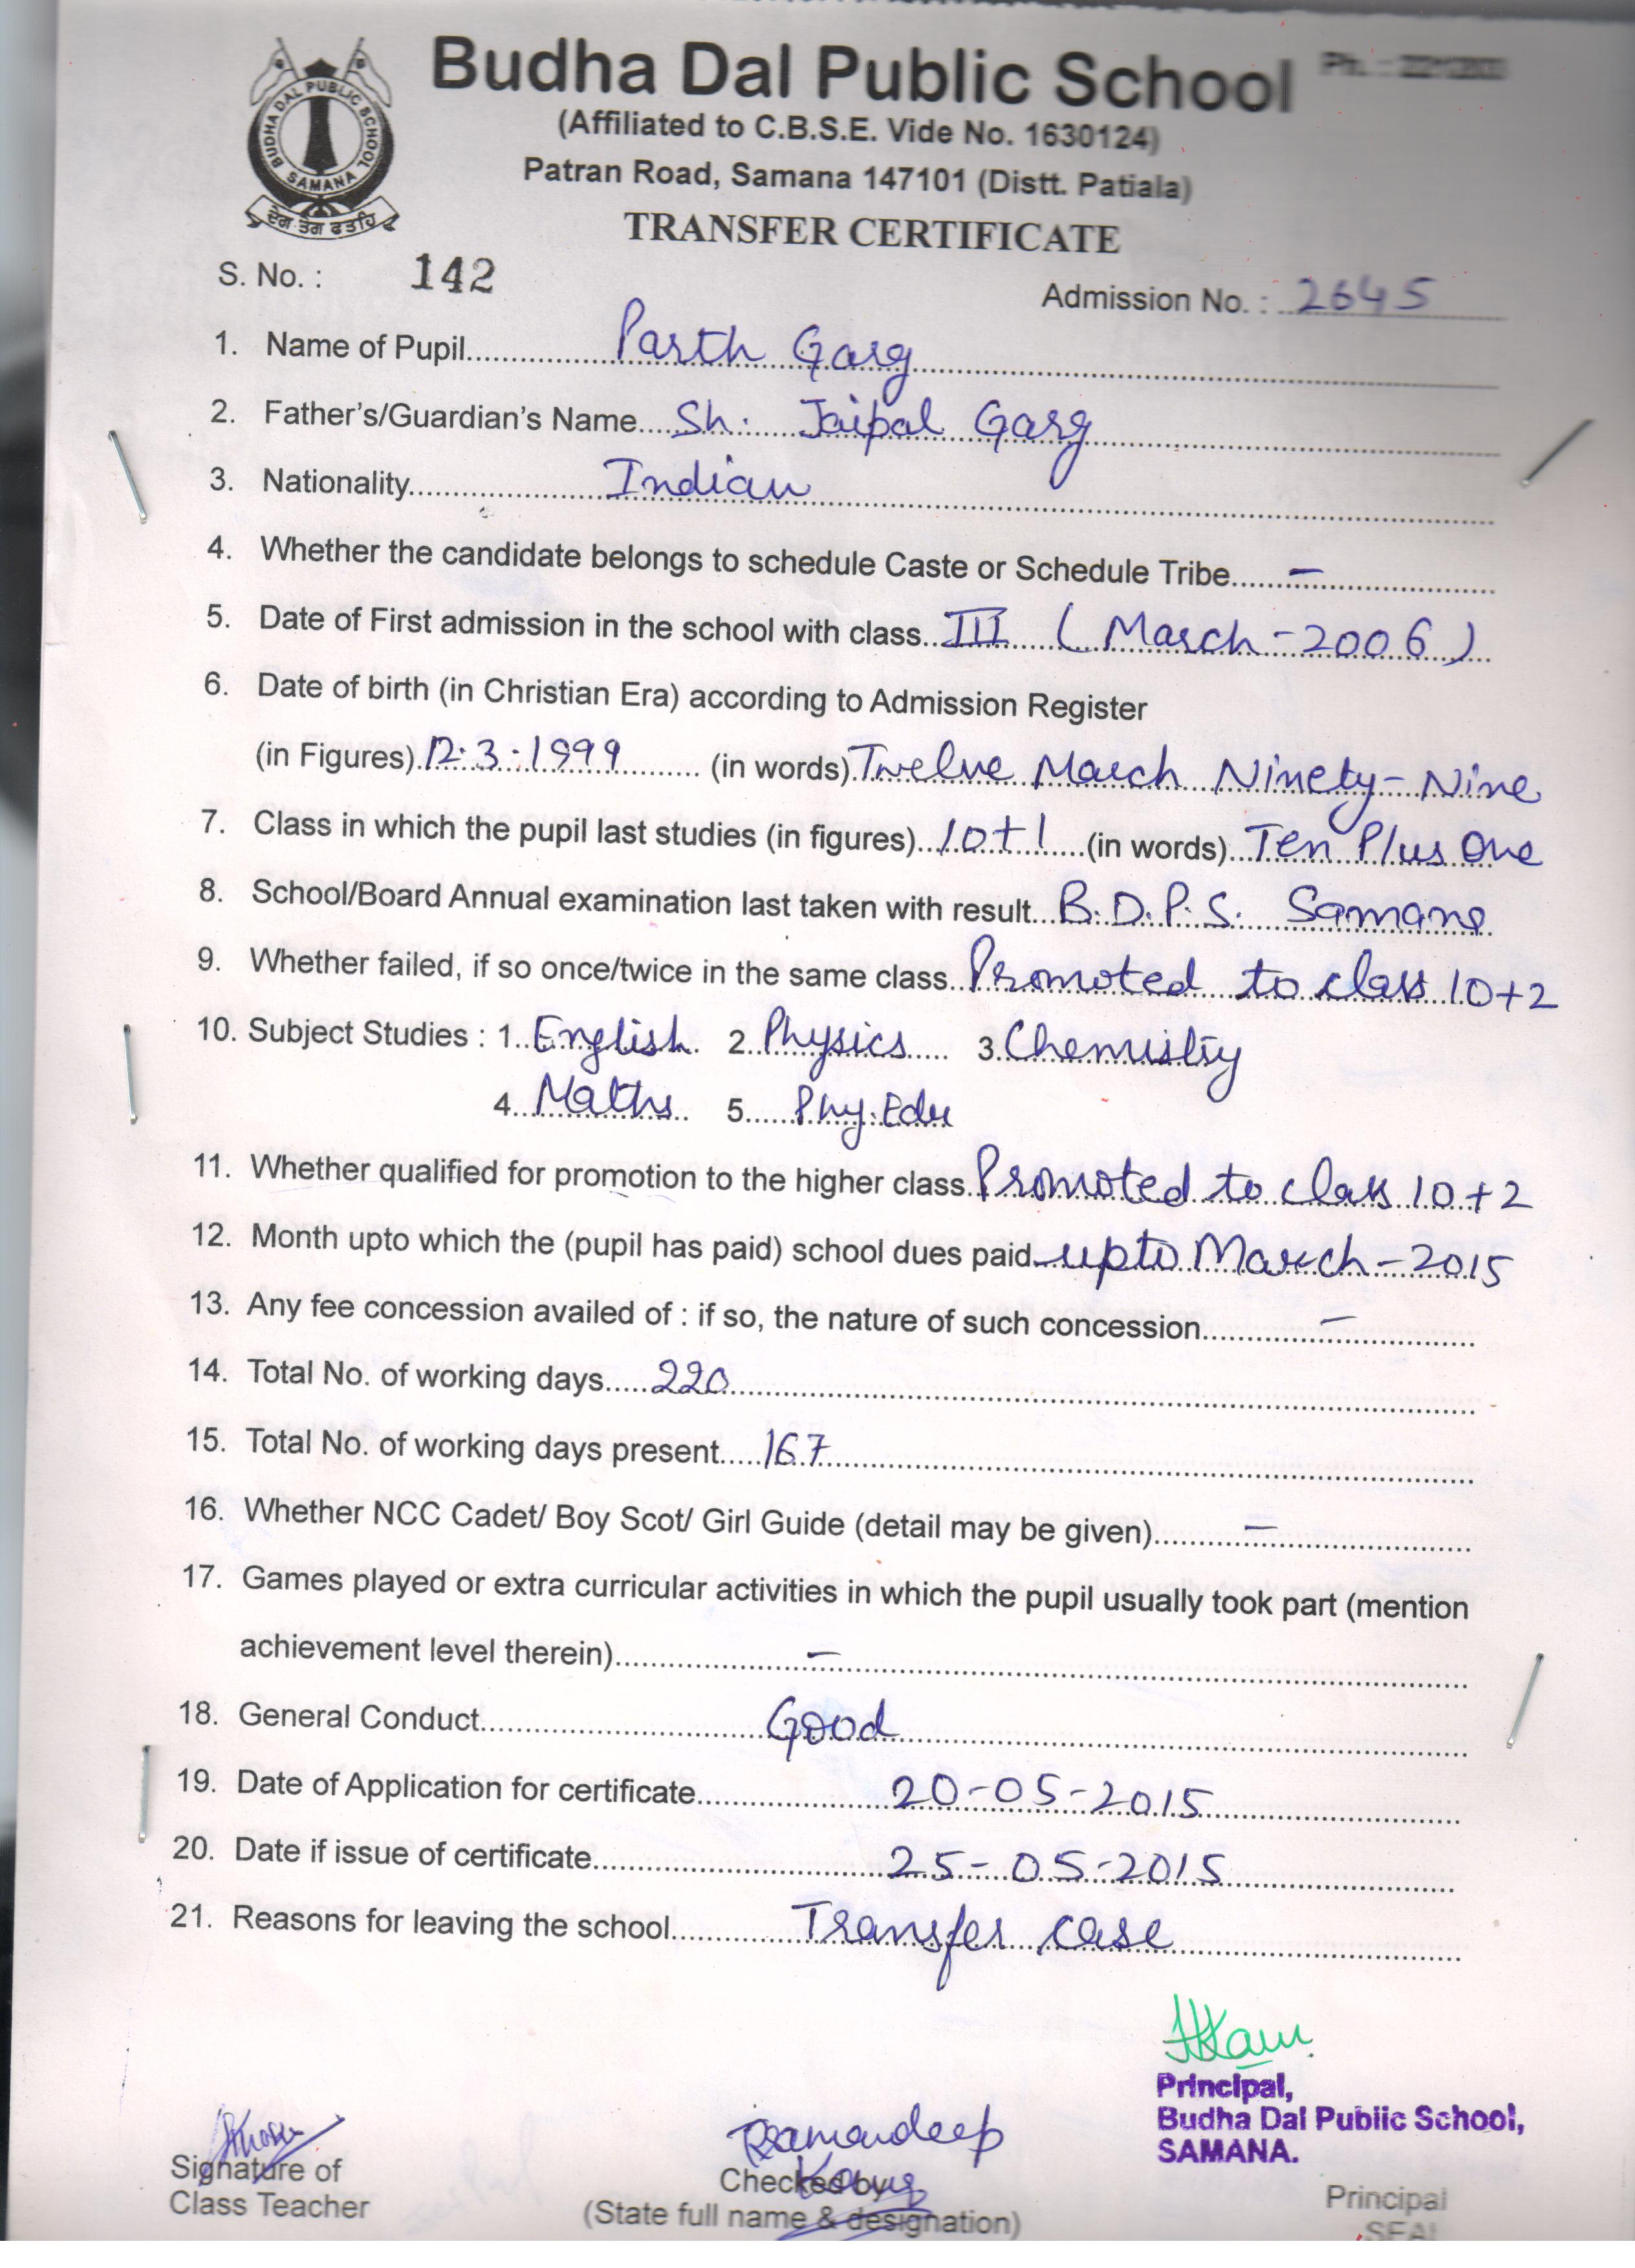 Budha Dal Public School
Ph. :
(Affiliated to C.B.S.E. Vide No. 1630124)
Patran Road, Samana 147101 (Distt. Patiala)
BUDHA DAL PUBLIC SCHOOL
SAMANA
ਦੇਗ ਤੇਗ ਫਤਹਿ
TRANSFER CERTIFICATE
S. No. : 142
Admission No. : 2645
1. Name of Pupil Parth Garg
2. Father's/Guardian's Name Sh. Jaipal Garg
3. Nationality Indian
4. Whether the candidate belongs to schedule Caste or Schedule Tribe —
5. Date of First admission in the school with class III (March-2006)
6. Date of birth (in Christian Era) according to Admission Register
(in Figures) 12.3.1999 (in words) Twelve March Ninety-Nine
7. Class in which the pupil last studies (in figures) 10+1 (in words) Ten Plus One
8. School/Board Annual examination last taken with result B.D.P.S. Samana
9. Whether failed, if so once/twice in the same class Promoted to class 10+2
10. Subject Studies : 1. English 2. Physics 3. Chemistry
4. Maths 5. Phy. Edu
11. Whether qualified for promotion to the higher class Promoted to class 10+2
12. Month upto which the (pupil has paid) school dues paid upto March-2015
13. Any fee concession availed of : if so, the nature of such concession —
14. Total No. of working days 220
15. Total No. of working days present 167
16. Whether NCC Cadet/ Boy Scot/ Girl Guide (detail may be given) —
17. Games played or extra curricular activities in which the pupil usually took part (mention
achievement level therein) —
18. General Conduct Good
19. Date of Application for certificate 20-05-2015
20. Date if issue of certificate 25-05-2015
21. Reasons for leaving the school Transfer case
Principal,
Budha Dal Public School,
SAMANA.
Ramandeep
Signature of
Class Teacher
Checked by
(State full name & designation)
Principal
SEAL